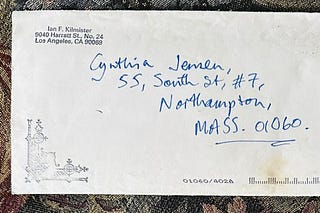 Ian F. Kilmister
9040 Harratt St., No. 24
Los Angeles, CA 90069
Cynthia Jensen,
55, South St, #7,
Northampton,
MASS. 01060.
01060/4028